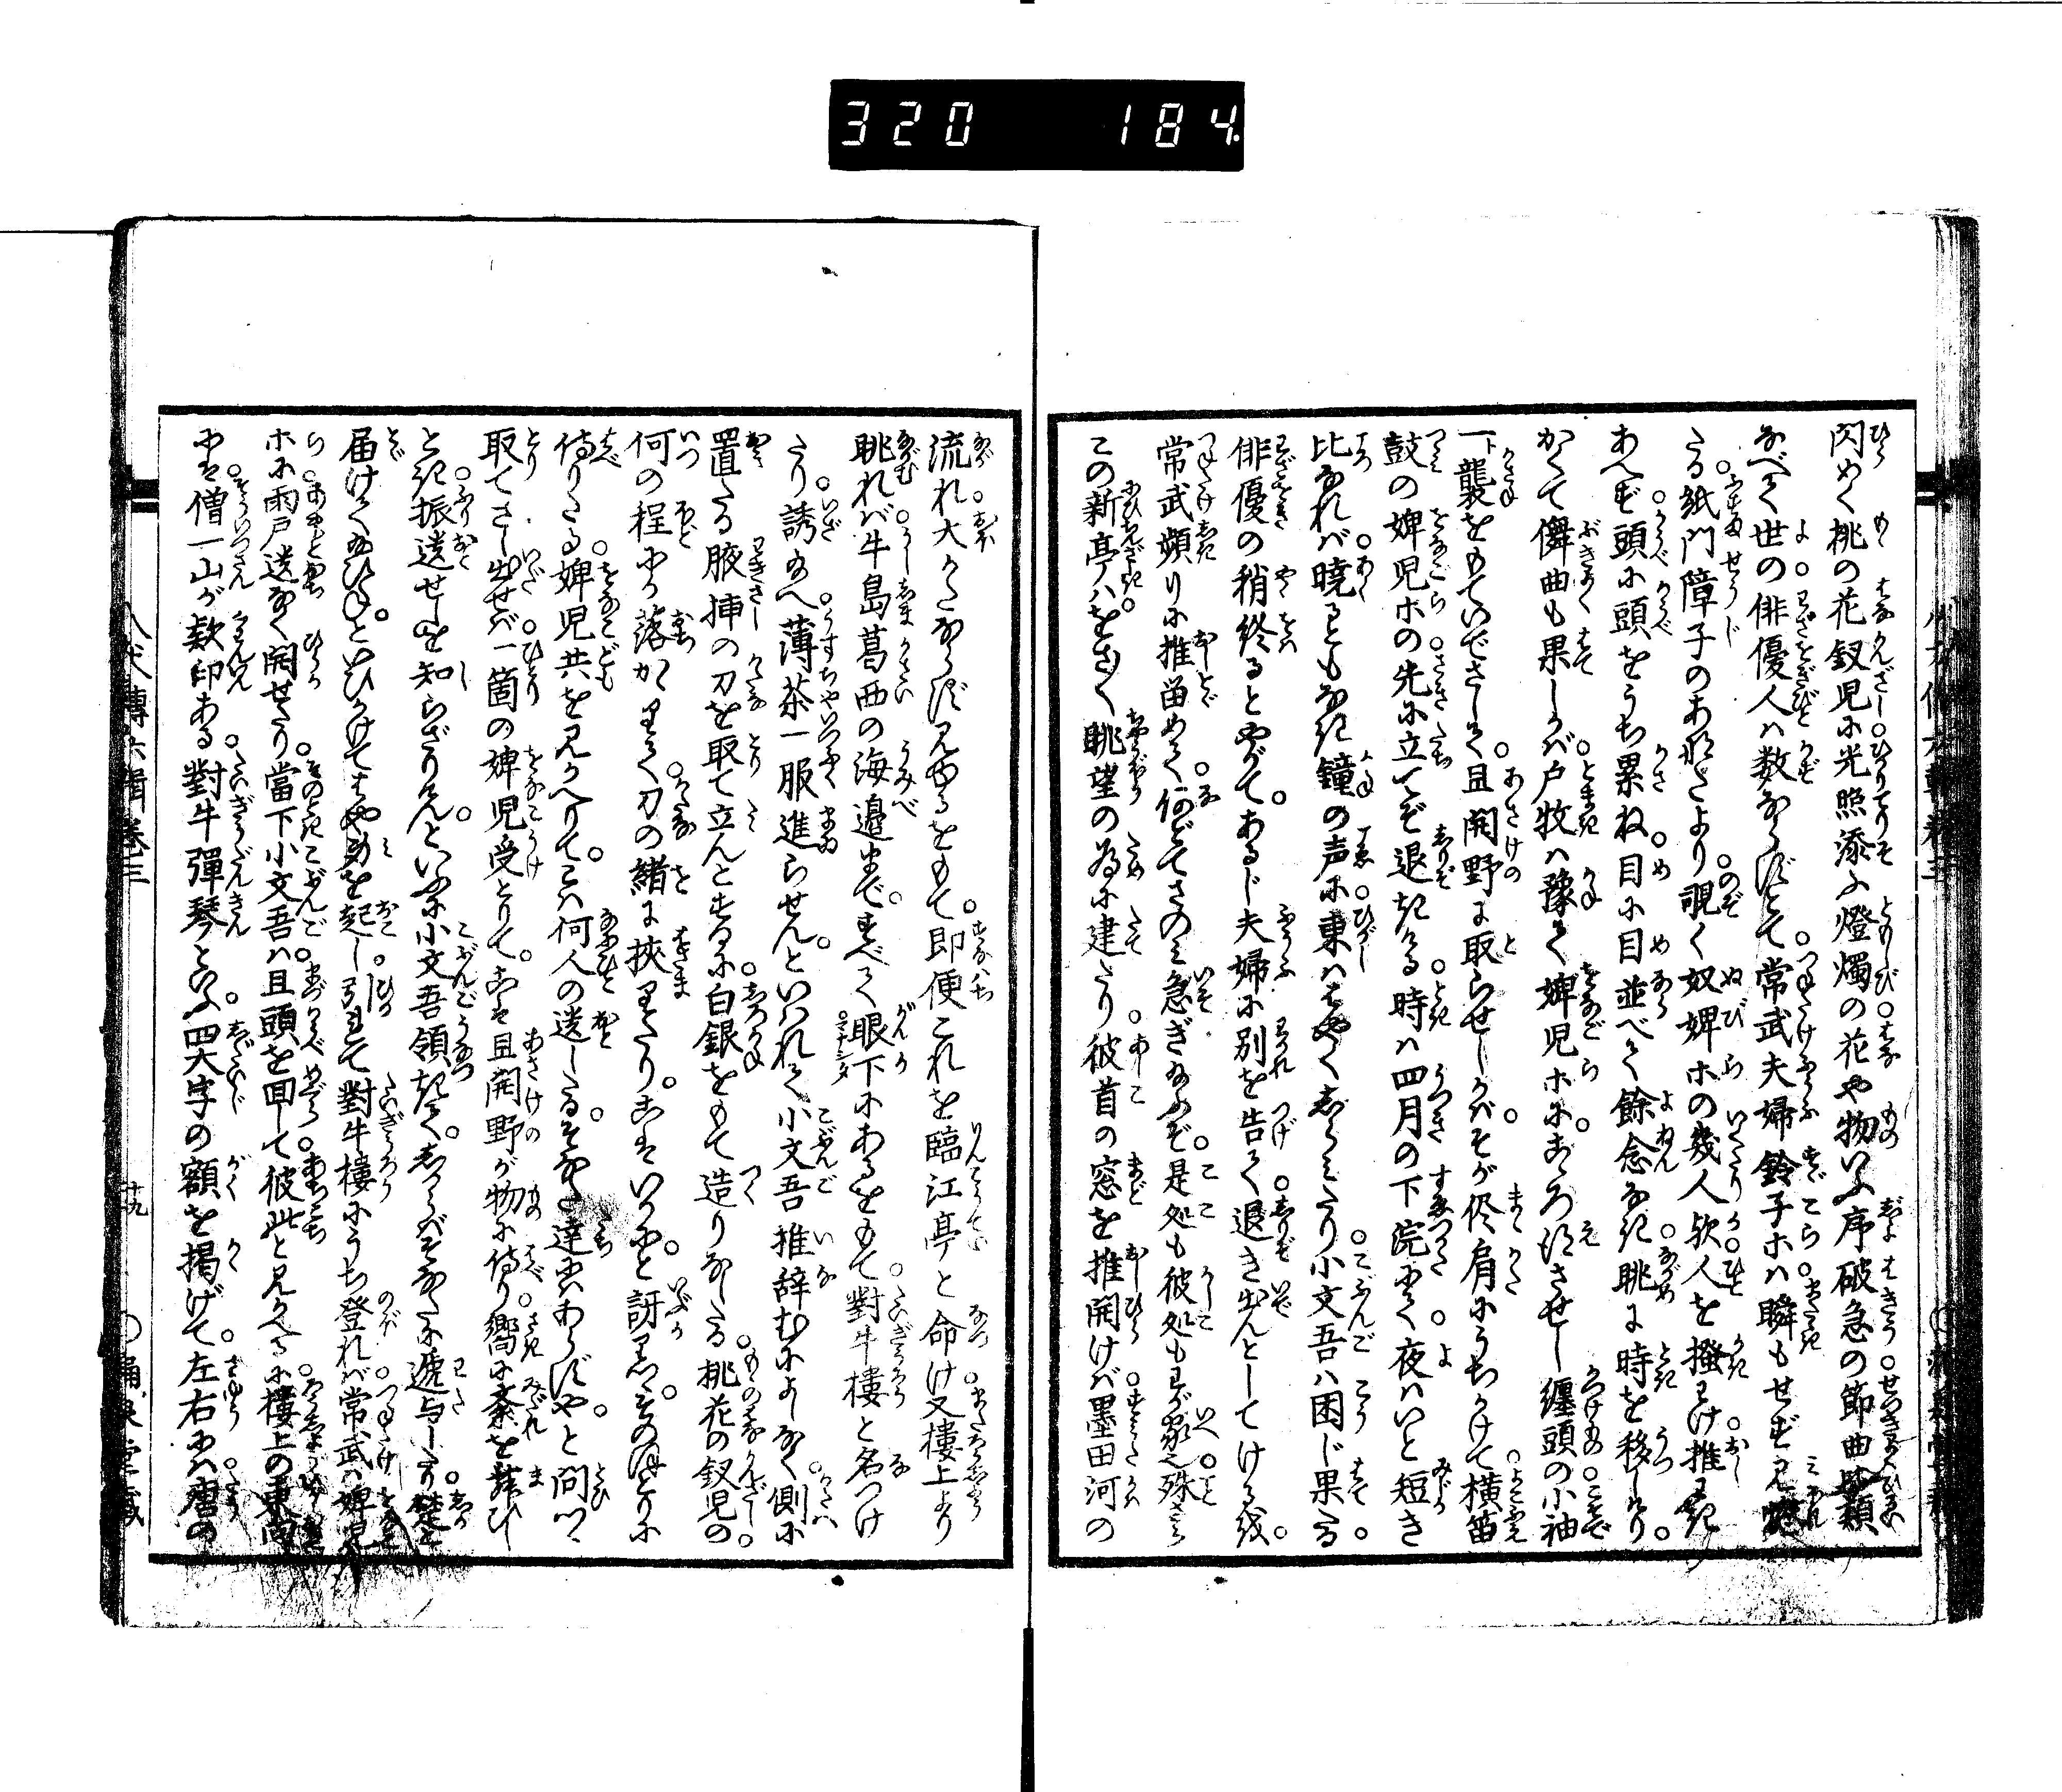 320 184
閃めく桃の花釵児に光照添ふ燈燭の花や物いふ序破急の節曲
なべて世の俳優人は数ならずとて常武夫婦鈴子ホは瞬もせず見
たる紙門障子のあはさより覗く奴婢ホの幾人欤人を搔わけ推わけ
あへず頭に頭をうち累ね目に目並べて餘念なき眺に時を移しけり。
かくて儛曲も果しかば戸牧は豫て婢児ホにこゝろ得させし纏頭の小袖
一襲をもていでさして。且開野に取らせしかばそが侭肩にうちかけて横笛
鼓の婢児ホの先に立てぞ退きける時は四月の下浣にて夜はいと短き
比なれば曉るともなき鐘の声に東ははやくしらみたり小文吾は困じ果たる
俳優の稍終るとやがて。あるじ夫婦に別を告て退き出んとしてけるを。
常武頻りに推畄めて何どてさのみ急ぎ給ふぞ。是処も彼処もわが家之殊さら
この新亭はをさ〳〵眺望の為に建たり彼首の窓を推開けば墨田河の
流れ大かたならず見ゆるをもて即便これを臨江亭と命け又樓上より
眺れば牛島葛西の海邉まで。すべて眼下にあるをもて對牛樓と名つけ
たり誘給へ薄茶一服進らせんといはれて小文吾推辞むによしなく側に
置たる腋挿の刀を取て立んとするに白銀をもて造りなしたる桃花の釵児の
何の程にか落かゝりて刀の緒に挾りたり。こはいかにと訝りつゝそのほとりに
侍りたる婢児共を見かへりて。こは何人の遺したる。そなた達にはあらずやと問へば
取てさし出せば一箇の婢児受とりて。こは且開野が物に侍り嚮に紊を舞ひし
とき振遺せしを知らざりけんといふに小文吾領きて。しからばそなたに遞与したり楚と
届けて給ひねといひかけてはや身を起し。引れて對牛樓にうち登れば常武は婢児
ホに雨戸遺なく開せたり當下小文吾は且頭を回して彼此と見かへるに樓上の東向
には僧一山が欵印ある對牛彈琴といふ四大字の額を掲げて。左右には唐の
八犬傳六輯卷三
十九